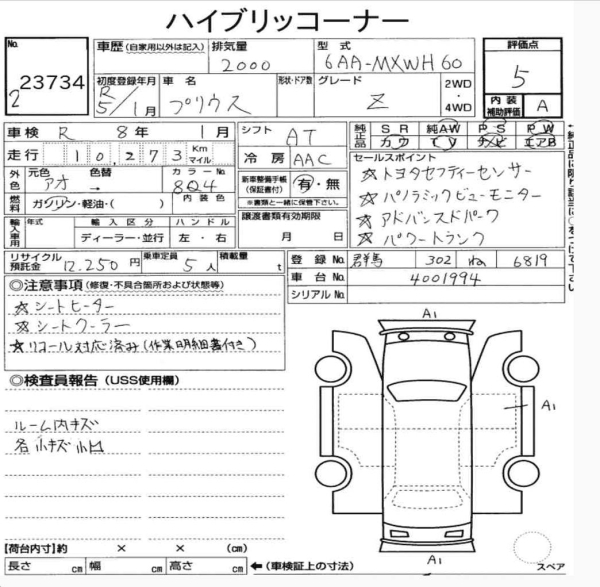 ハイブリッドコーナー
No. 23734
2
車歴 (自家用以外は記入)
排気量 2000
型式 6AA-MXWH60
評価点 5
内装補助評価 A
初度登録年月 R5/1月
車名 プリウス
形状・ドア数
グレード Z
2WD・4WD
車検 R 8年 1月
シフト AT
純正品 SR 純AW PS PW
カワ TV ナビ エアB
走行 10,273 Km マイル
冷房 AAC
セールスポイント
☆トヨタセフティーセンサー
☆パノラミックビューモニター
☆アドバンスドパーク
☆パワートランク
外色 元色 アオ → 色替
カラーNo. 8Q4
内装色
燃料 ガソリン・軽油・( )
新車整備手帳(保証書付) 有・無
※書類と一緒に保管下さい。
譲渡書類有効期限
月 日
輸入車用 年式 輸入区分 ハンドル
ディーラー・並行 左・右
リサイクル預託金 12,250円
乗車定員 5人
積載量 t
登録No. 群馬 302 ね 6819
車台No. 4001994
シリアルNo.
◎注意事項 (修復・不具合箇所および状態等)
☆シートヒーター
☆シートクーラー
☆リコール対応済み(作業明細書付き)
◎検査員報告 (USS使用欄)
ルーム内キズ
各小キズ 小凹
A1
A1
A1
スペア
【荷台内寸】約 × × (cm)
長さ cm 幅 cm 高さ cm ←(車検証上の寸法)